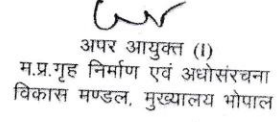 अपर आयुक्त (I)
म.प्र.गृह निर्माण एवं अधोसंरचना
विकास मण्डल, मुख्यालय भोपाल